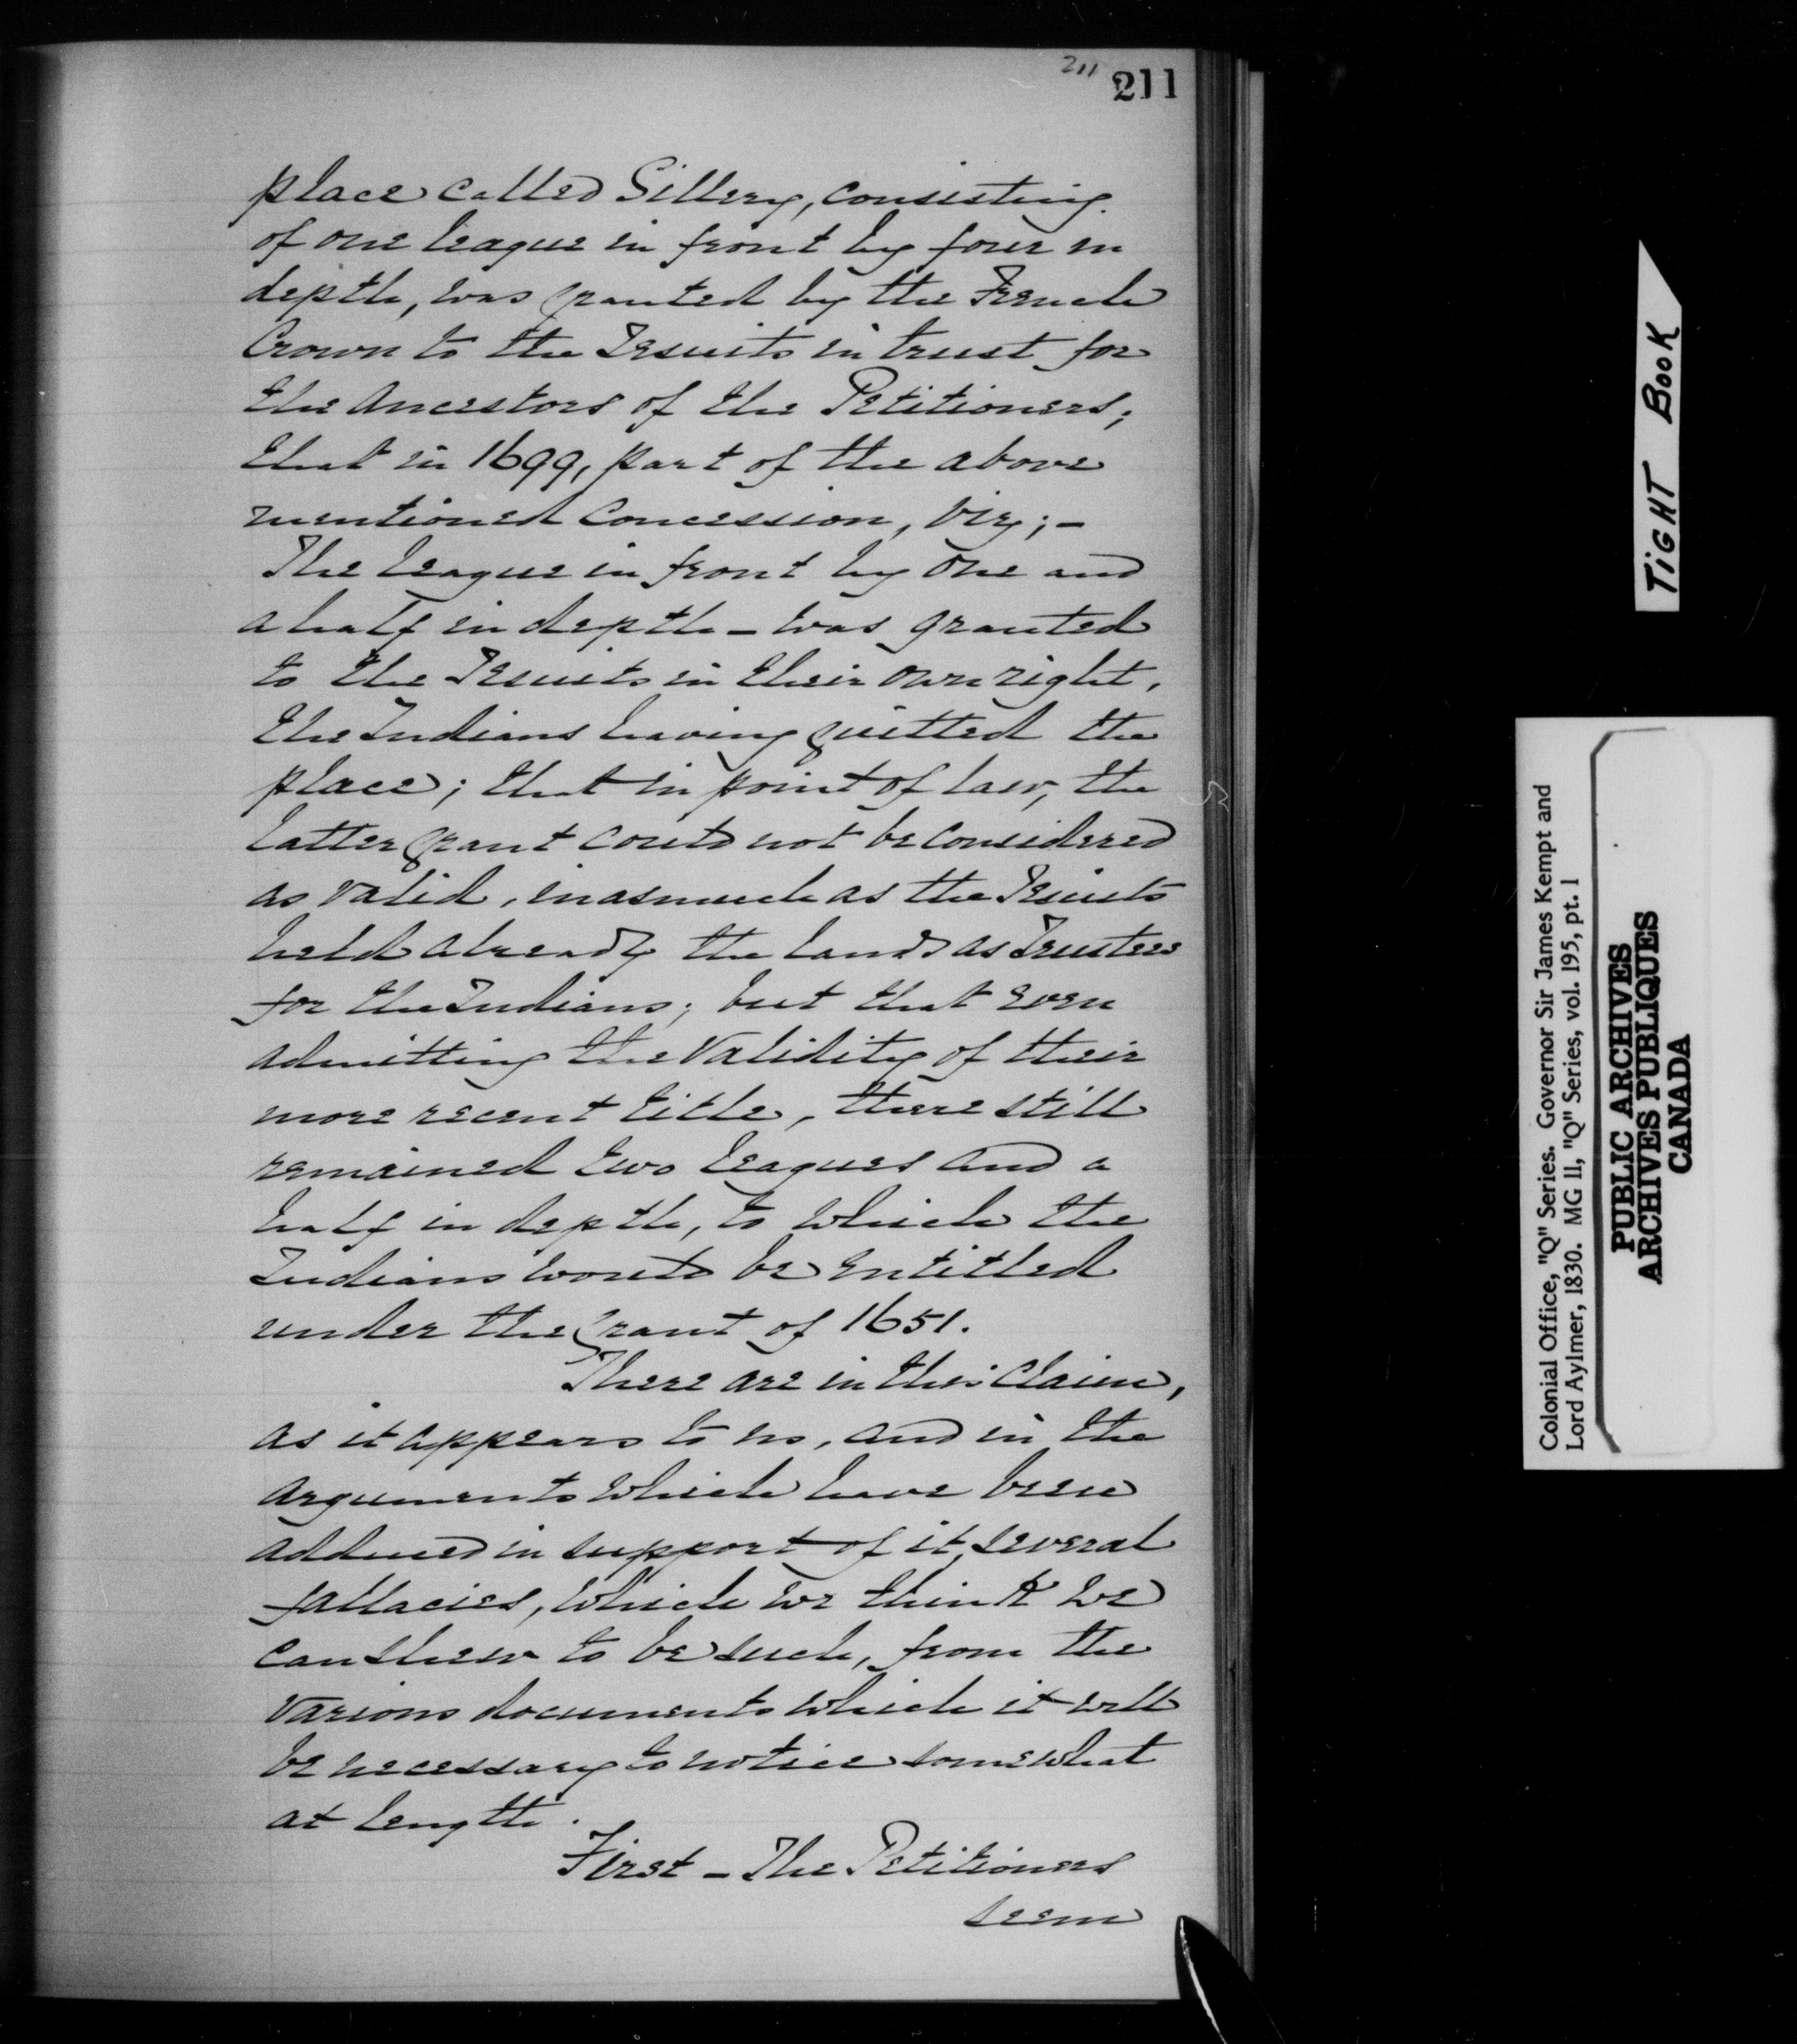 211
211
place called Sillery, consisting
of one league in front by four in
depth, was granted by the French
Crown to the Jesuits in trust for
the Ancestors of the Petitioners;
that in 1699, part of the above
mentioned Concession, Viz; -
The league in front by one and
a half in depth - was granted
to the Jesuits in their own right,
the Indians having quitted the
place; that in point of law, the
latter grant could not be considered
as valid, inasmuch as the Jesuits
held already the land as Trustees
for the Indians; but that even
admitting the Validity of their
more recent title, there still
remained two leagues and a
half in depth, to which the
Indians would be entitled
under the Grant of 1651.
There are in this Claim,
as it appears to us, and in the
arguments which have been
adduced in support of it, several
fallacies, which we think we
can shew to be such, from the
various documents which it will
be necessary to notice somewhat
at length.
First - The Petitioners
seem
TIGHT BOOK
Colonial Office, "Q" Series. Governor Sir James Kempt and
Lord Aylmer, 1830. MG 11, "Q" Series, vol. 195, pt. 1
PUBLIC ARCHIVES
ARCHIVES PUBLIQUES
CANADA